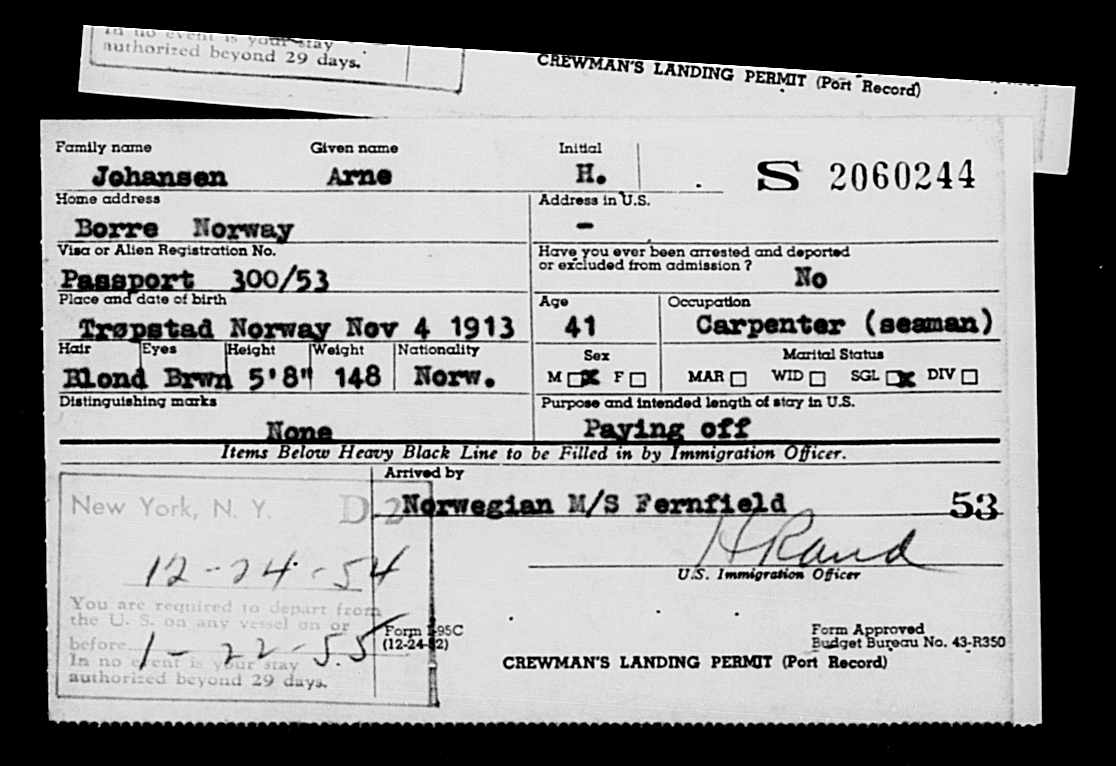 In no event is your stay
authorized beyond 29 days.
CREWMAN'S LANDING PERMIT (Port Record)
Family name Given name Initial
Johansen Arne H. S 2060244
Home address Address in U.S.
Borre Norway -
Visa or Alien Registration No. Have you ever been arrested and deported
or excluded from admission ?
Passport 300/53 No
Place and date of birth Age Occupation
Trøpstad Norway Nov 4 1913 41 Carpenter (seaman)
Hair Eyes Height Weight Nationality Sex Marital Status
Blond Brwn 5'8" 148 Norw. M X F MAR WID SGL X DIV
Distinguishing marks Purpose and intended length of stay in U.S.
None Paying off
Items Below Heavy Black Line to be Filled in by Immigration Officer.
Arrived by
New York, N. Y. D-2 Norwegian M/S Fernfield 53
H Rand
12-24-54
U.S. Immigration Officer
You are required to depart from
the U. S. on any vessel on or
before 1-22-55
In no event is your stay
authorized beyond 29 days.
Form I-95C
(12-24-52)
Form Approved
Budget Bureau No. 43-R350
CREWMAN'S LANDING PERMIT (Port Record)